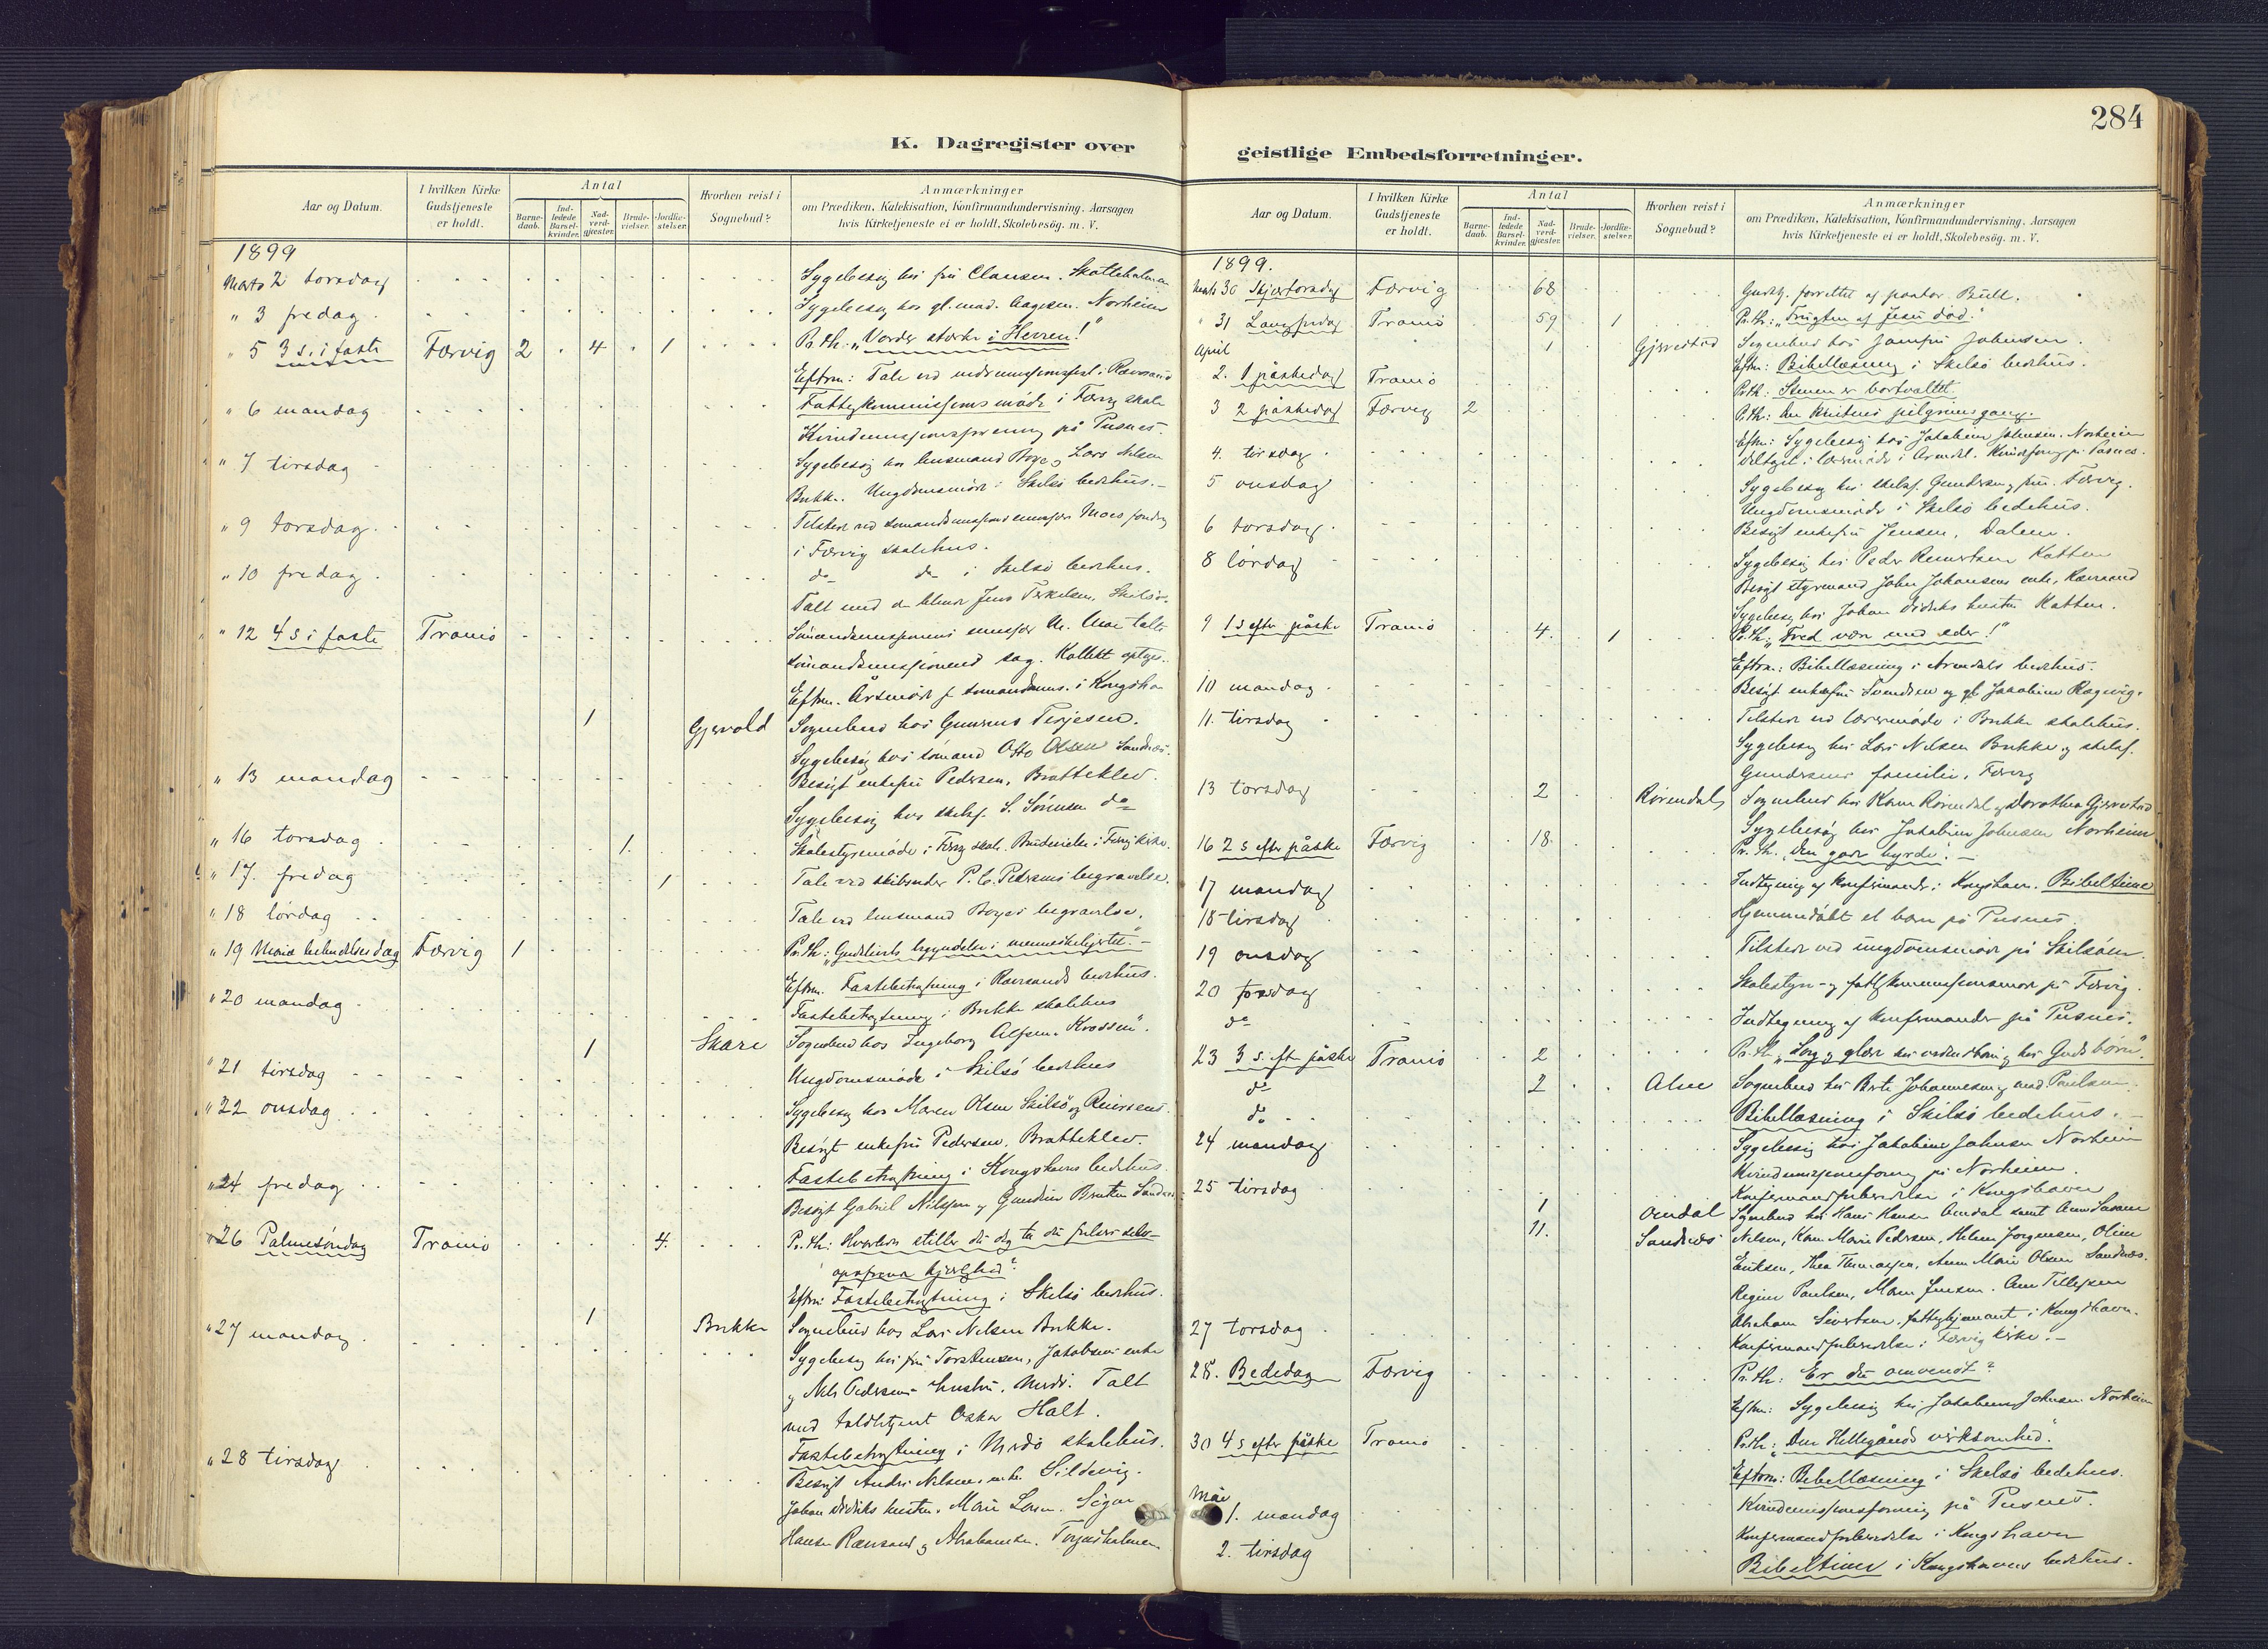 284
K. Dagregister over
Aar og Datum.
I hvilken Kirke Gudstjeneste er holdt.
Antal
Barne-daab.
Ind-ledede Barsel-kvinder.
Nad-verd-gjæster.
Brude-vielser.
Jordfæ-stelser.
Hvorhen reist i Sognebud?
Anmærkninger
om Prædiken, Katekisation, Konfirmandundervisning, Aarsagen
hvis Kirketjeneste ei er holdt, Skolebesög. m. V.
1899
Marts 2 torsdag Sygebesøg hos fru Clausen. Skatteholmen
" 3 fredag Sygebesøg hos gl. mad. Aagesen. Norheim
" 5 3 s. i faste Færvig 2 4 1 Pr. th.: "Vorder stærke i Herren!"
Eftm: Tale ved
" 6 mandag Fattigkommissionsmøde i Færvig skole
Kvindemissionsforening på Pusnes.
" 7 tirsdag Sygebesøg hos lensmand Boye og Lars Nilsen
Bukke. Ungdomsmøde i Skilsø bedehus.
" 9 torsdag Tilstede ved
i Færvig skolehus.
" 10 fredag do do i Skilsø bedehus.
Talt med Jens Terkelsen, Skilsø.
" 12 4 s i faste Tromø talte
sømandsmissionens sag. Kollekt optoges.
Eftm. Årsmøde i Kongshavn
1 Gjervold Sognebud hos Gunnus Terjesen.
Sygebesøg hos sømand Otto Olsen Sandnæs.
" 13 mandag Besøgt enkefru Pedersen, Bratteklev.
Sygebesøg hos skibsf. S. Sørensen do
" 16 torsdag 1. Skolestyremøde i Færvig skole. Brudevielse i Færvig kirke.
" 17. fredag 1 Tale ved skibsreder P. C. Pedersens begravelse.
" 18 lørdag Tale ved lensmand Boyes begravelse.
" 19 Maria bebudelses dag Færvig 1 Pr. th.: "Gudslivets begyndelse i menneskehjertet."
Eftm. Fastebetragtning i Rævesands bedehus.
" 20 mandag Fastebetragtning i Bukke skolehus
1 Skare Sognebud hos Ingeborg
" 21 tirsdag Ungdomsmøde i Skilsø bedehus
" 22 onsdag Sygebesøg hos Maren Olsen Skilsø og
Besøgt enkefru Pedersen, Bratteklev.
" 24 fredag Fastebetragtning i Kongshavns bedehus.
Besøgt Gabriel Nilsen og
" 26 Palmesøndag Tromø 4. Pr. th: Hvorledes stiller du dig til din frelsers selv-
opofrende kjærlighed?
Eftm: Fastebetragtning i Skilsø bedehus.
" 27 mandag 1 Bukke Sognebud hos Lars Nilsen Bukke.
Sygebesøg hos fru Torstensen, Jakobsens enke
og Nils Pedersens hustru, Merdø. Talt
med toldbetjent Oskar Holt.
Fastebetragtning i Merdø skolehus.
" 28 tirsdag Besøgt
Johan Didriks hustru.
Hansen Rævesand og Abrahamsen. Torjusholmen
geistlige Embedsforretninger.
Aar og Datum.
I hvilken Kirke Gudstjeneste er holdt.
Antal
Barne-daab.
Ind-ledede Barsel-kvinder.
Nad-verd-gjæster.
Brude-vielser.
Jordfæ-stelser.
Hvorhen reist i Sognebud?
Anmærkninger
om Prædiken, Katekisation, Konfirmandundervisning, Aarsagen
hvis Kirketjeneste ei er holdt, Skolebesög. m. V.
1899.
Marts 30 Skjærtorsdag Færvig 68 Gudstj. forrettet af pastor Bull.
" 31 Langfredag Tromø 59 1 Pr. th.: "Frugten af Jesu død."
April 1 Gjervestad Sognebud hos jomfru Johnsen.
Eftm: Bibellæsning i Skilsø bedehus.
2. 1 påskedag Tromø Pr. th.: Stenen er bortvæltet.
3 2 påskedag Færvig 2 Pr. th.: En kristens pilgrimsgang.
Eftm: Sygebesøg hos Jakobine Johnsen. Norheim
4. tirsdag Deltaget i lærermøde i Arendal.
5 onsdag Sygebesøg hos skibsf. Gundersens fru. Færvig.
Ungdomsmøde i Skilsø bedehus.
6 torsdag Besøgt enkefru Jensen, Dalen.
8 lørdag Sygebesøg hos Peder Reinertsen Katten
Besøgt styrmand John Johansens enke, Rævesand
Sygebesøg hos Johan Didriks hustru Katten.
9 1 s efter påske Tromø 4. 1 Pr. th.: "Fred være med eder!"
Eftm.: Bibellæsning i Arendals bedehus.
10 mandag Besøgt enkefru Svendsen og gl. Jakobine Rægevig.
11. tirsdag Tilstede ved lærermøde i Bukke skolehus.
Sygebesøg hos Lars Nilsen Bukke og skibsf.
Gundersens familie, Færvig
13 torsdag 2 Rørendal, Sognebud hos Karen Rørendal og Dorothea Gjervestad
Sygebesøg hos Jakobine Johnsen Norheim
16 2 s efter påske Færvig 18. Pr. th. "Den gode hyrde".
17 mandag Indtegning af konfirmander i Kongshavn. Bibeltime
18 tirsdag Hjemmedøbt et barn på Pusnes.
19 onsdag Tilstede ved ungdomsmøde på Skilsøen.
20 torsdag Skolestyre- og fattigkommissionsmøde på Færvig.
do Indtegning af konfirmander på Pusnes.
23 3 s. eft. påske Tromø 2 Pr. th. "Sorg og glæde hos verdens børn og hos Guds børn".
do 2 Alve Sognebud hos Berte Johannesen og mad Paulsen.
do Bibellæsning i Skilsø bedehus.
24 mandag Sygebesøg hos Jakobine Johnsen Norheim
Kvindemissionsforening på Norheim.
25 tirsdag Konfirmandforberedelse i Kongshavn
1 Omdal Sognebud hos Hans Hansen Omdal samt
11. Sandnæs Nilsen, Karen Marie Pedersen, Helene Jørgensen, Oline
Eriksen, Thea Thomassen, Anne Marie Olsen Sandnæs.
Regine Paulsen, Maren Jensen. Ane Tellefsen
Abraham Sivertsen i Kongshavn.
27 torsdag Konfirmandforberedelse i Færvig kirke.
28. Bededag Færvig Pr. th: Er du omvendt?
Eftm: Sygebesøg hos Jakobine Johnsen Norheim
30 4 s efter påske Tromø Pr. th.: "Den Helligånds virksomhed."
Eftm: Bibellæsning i Skilsø bedehus.
Mai 1. mandag Kvindemissionsforening på Pusnes.
2. tirsdag Konfirmandforberedelse i Kongshavn
Bibeltime i Kongshavns bedehus.